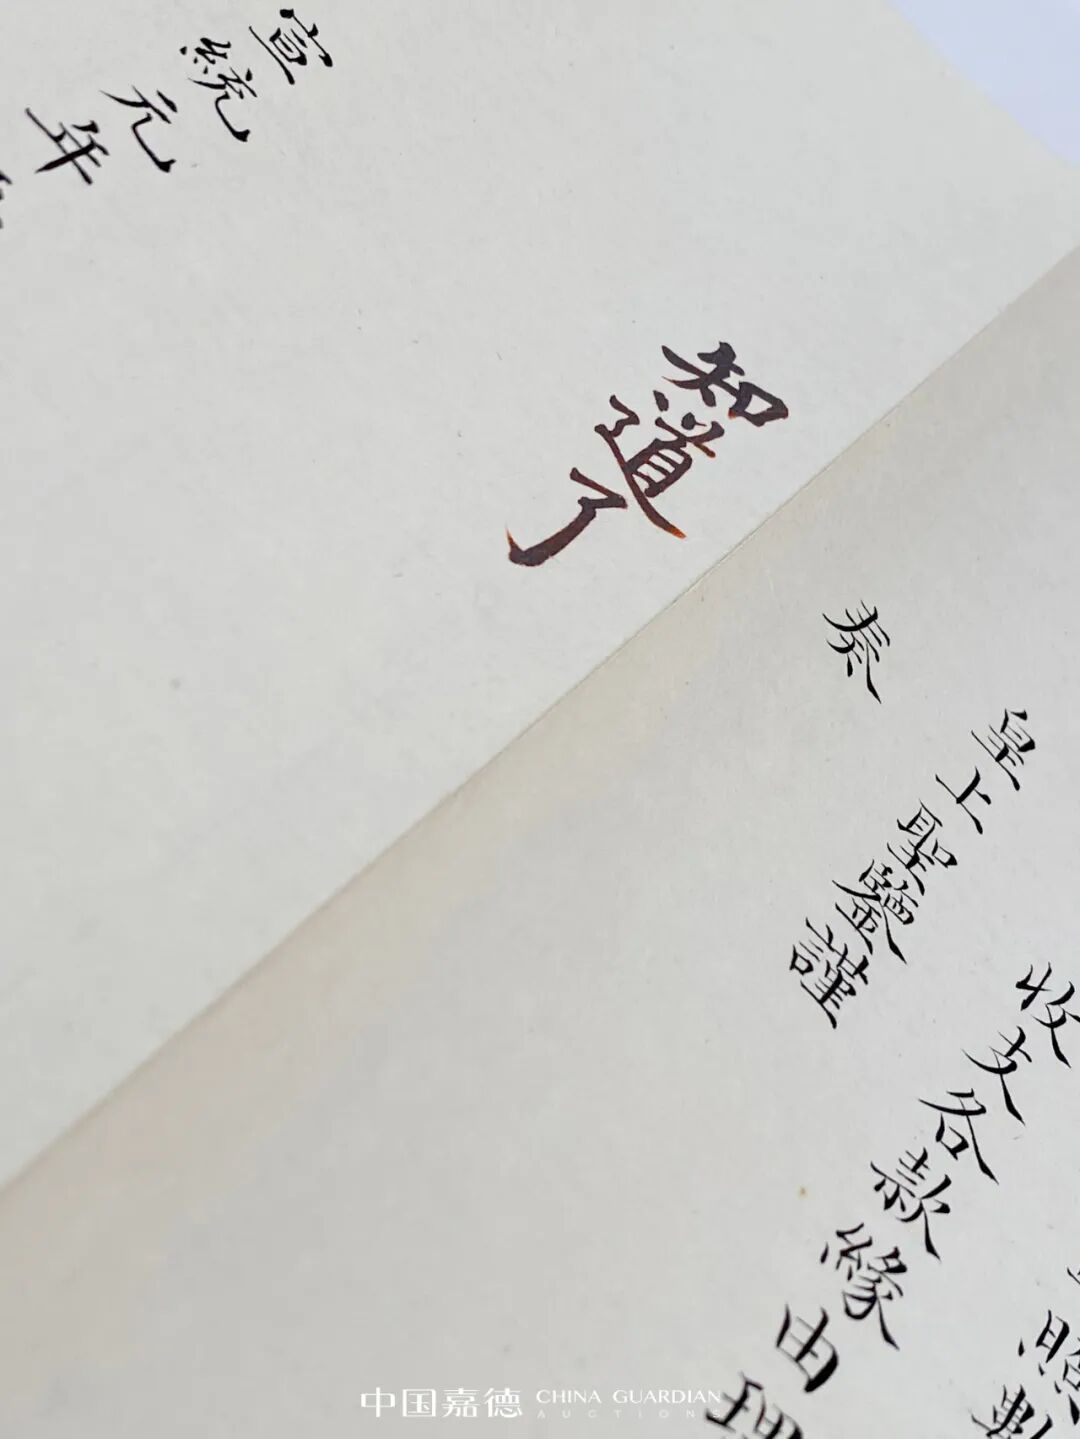 照數
收支各款緣由理
皇上聖鑒謹
奏
知道了
宣統元年
中国嘉德 CHINA GUARDIAN
AUCTIONS